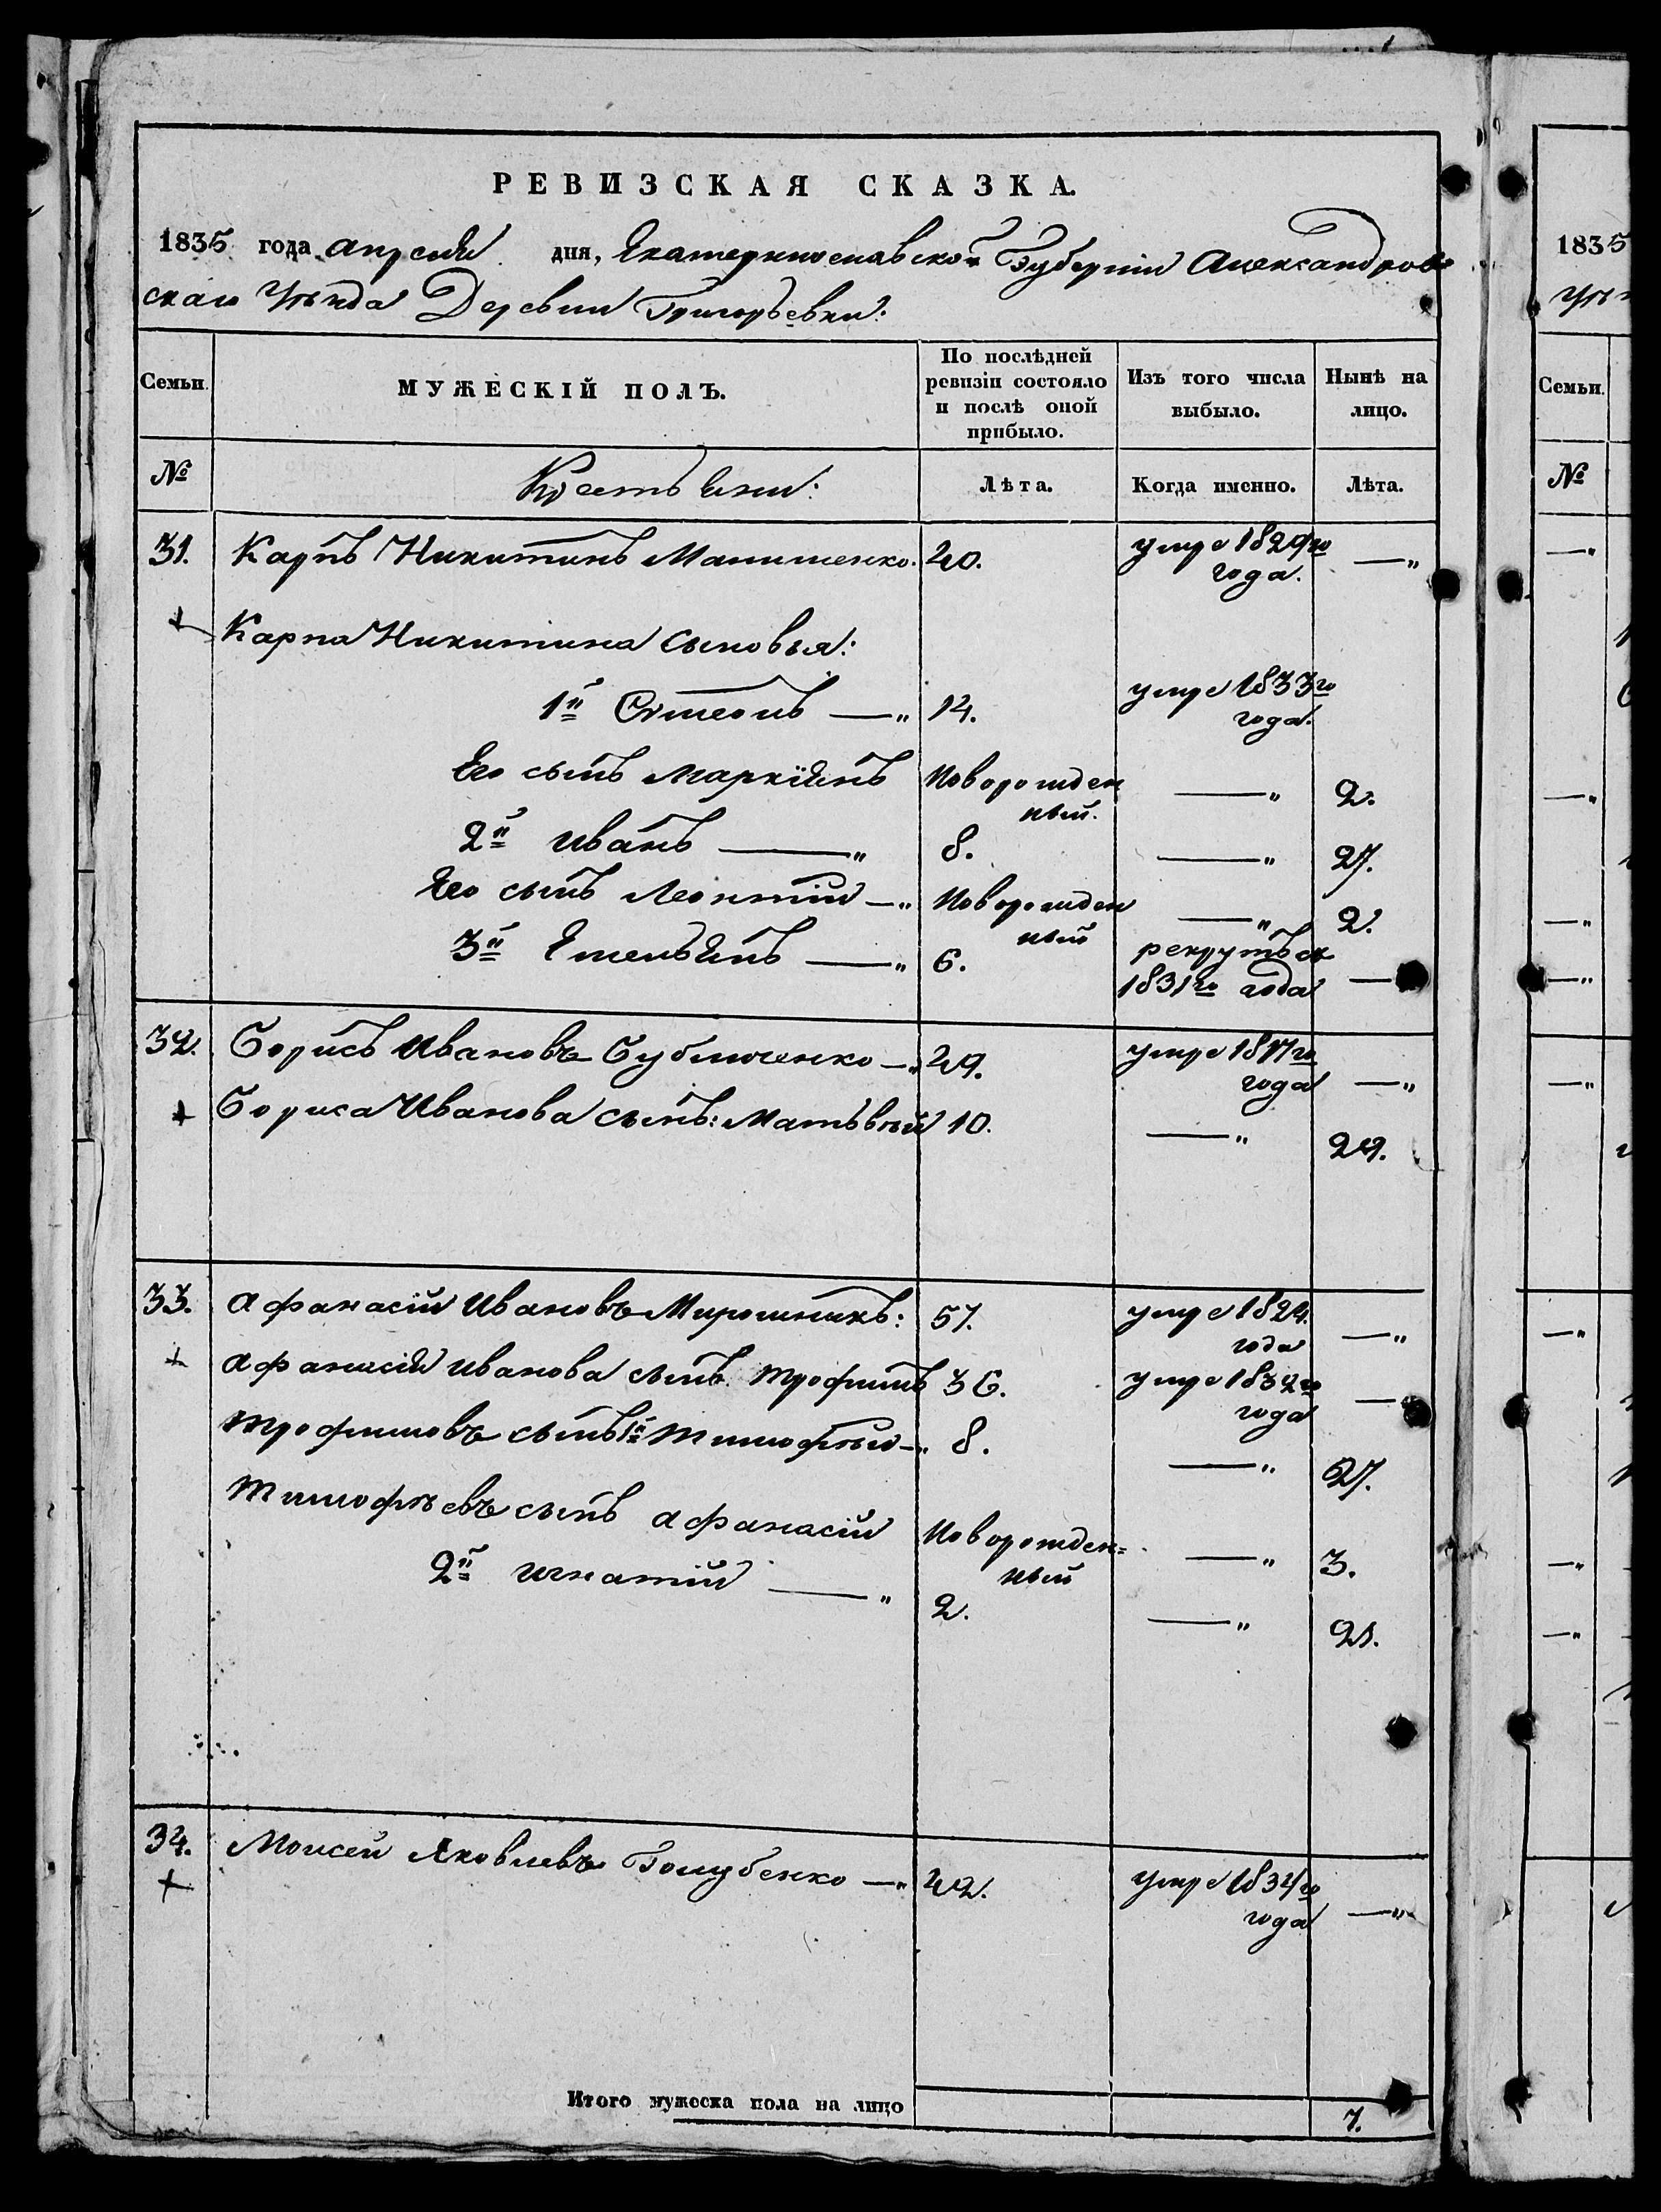 РЕВИЗСКАЯ СКАЗКА.
1835 года апреля дня, Екатеринославской Губерніи Александров
скаго Уѣзда Деревни Григорьевки:
Семьи. МУЖЕСКІЙ ПОЛЪ. По послѣдней ревизіи состояло и послѣ оной прибыло. Изъ того числа выбыло. Нынѣ на лицо.
№ Крестьяни: Лѣта. Когда именно. Лѣта.
31. Карпъ Никитинъ 40. умре
года. —„
Карпа Никитина сыновья:
1й —„ 14. умре 1833го
года.
Его сынъ Новорожден
ный. —„ 2.
2й Иванъ —„ 8. —„ 27.
Его сынъ Леонтій —„ Новорожден
ный —„ 2.
3й Емельянъ —„ 6. рекрутъ
1831го года —
32. Борисъ Ивановъ —„ 49. умре 1817го
года —„
Бориса Иванова сынъ: Матьвѣй 10. —„ 29.
33. Афанасій Ивановъ Мирошникъ: 57. умре 1824.
года —„
Афанасія Иванова сынъ Трофимъ 36. умре 1832го
года —„
Трофимовъ сынъ 1й Тимофѣй —„ 8. —„ 27.
Тимофѣевъ сынъ Афанасій Новорожден=
ный —„ 3.
2й Игнатій —„ 2. —„ 21.
34. Моисей Яковлевъ Голубенко —„ 42. умре 1834го
года —„
Итого мужеска пола на лицо 7.
1835
Семьи.
№